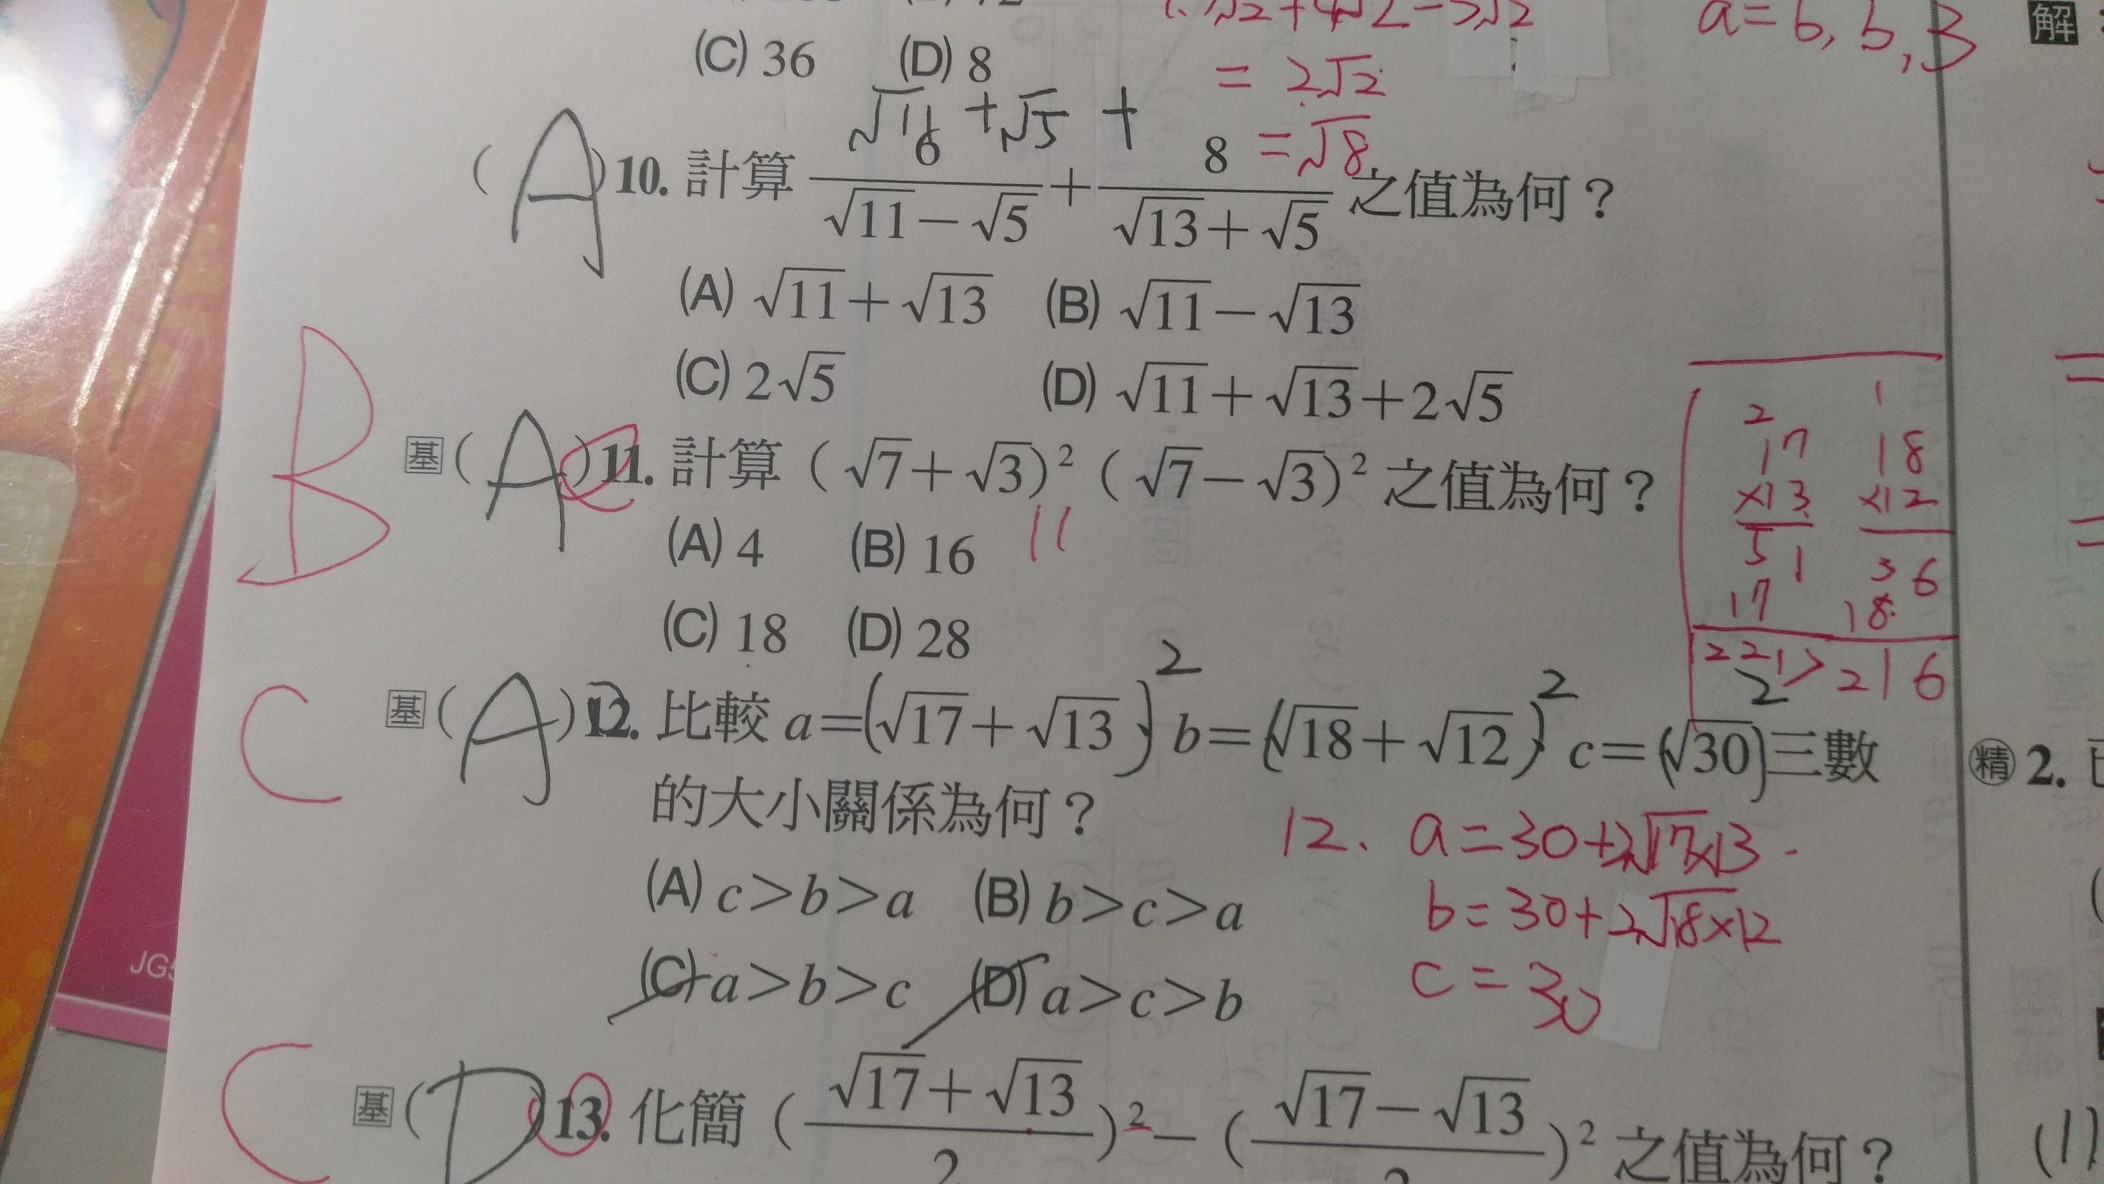 (C) 36 (D) 8
= 2√2
= √8
a=6, b, 3
解
√16 + √5 +
(A) 10. 計算 ──/(√11－√5) + 8/(√13＋√5) 之值為何？
(A) √11＋√13 (B) √11－√13
(C) 2√5 (D) √11＋√13＋2√5
B 基 (A) 11. 計算（√7＋√3）²（√7－√3）² 之值為何？
(A) 4 (B) 16 11
(C) 18 (D) 28
2 1
17 18
×13 ×12
51 36
17 18
221 > 216
C 基 (A) 12. 比較 a＝(√17＋√13)² b＝(√18＋√12)² c＝(√30)² 三數
的大小關係為何？
(A) c＞b＞a (B) b＞c＞a
(C) a＞b＞c (D) a＞c＞b
12. a=30+2√17×13
b=30+2√18×12
c=30
C 基 (D) 13. 化簡（(√17＋√13)/2）²－（(√17－√13)/2）² 之值為何？
JG5
精 2.
(1)